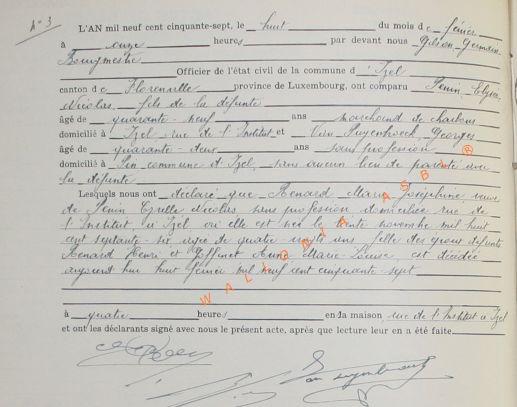 N° 3
L'AN mil neuf cent cinquante-sept, le huit du mois de février
à onze heures par devant nous Gilson Germain
Bourgmestre
Officier de l'état civil de la commune d'Izel
canton de Florenville province de Luxembourg, ont comparu Pénin
Nicolas fils de la défunte
âgé de quarante-neuf ans marchand de charbons
domicilié à Izel rue de l'Institut et Georges
âgé de quarante-deux ans sans profession
domicilié à commune d'Izel, sans aucun lien de parenté avec
la défunte
Lesquels nous ont déclaré que Renard Marie Joséphine veuve
de Pénin Nicolas sans profession domiciliée rue de
l'Institut à Izel où elle est née le trente novembre mil huit
cent septante-six âgée de quatre vingts ans fille des époux défunts
Renard Henri et Marie-Louise, est décédée
aujourd'hui huit février mil neuf cent cinquante sept
à quatre heures en la maison rue de l'Institut à Izel
et ont les déclarants signé avec nous le présent acte, après que lecture leur en a été faite.
WALLOBIA ASBL ®